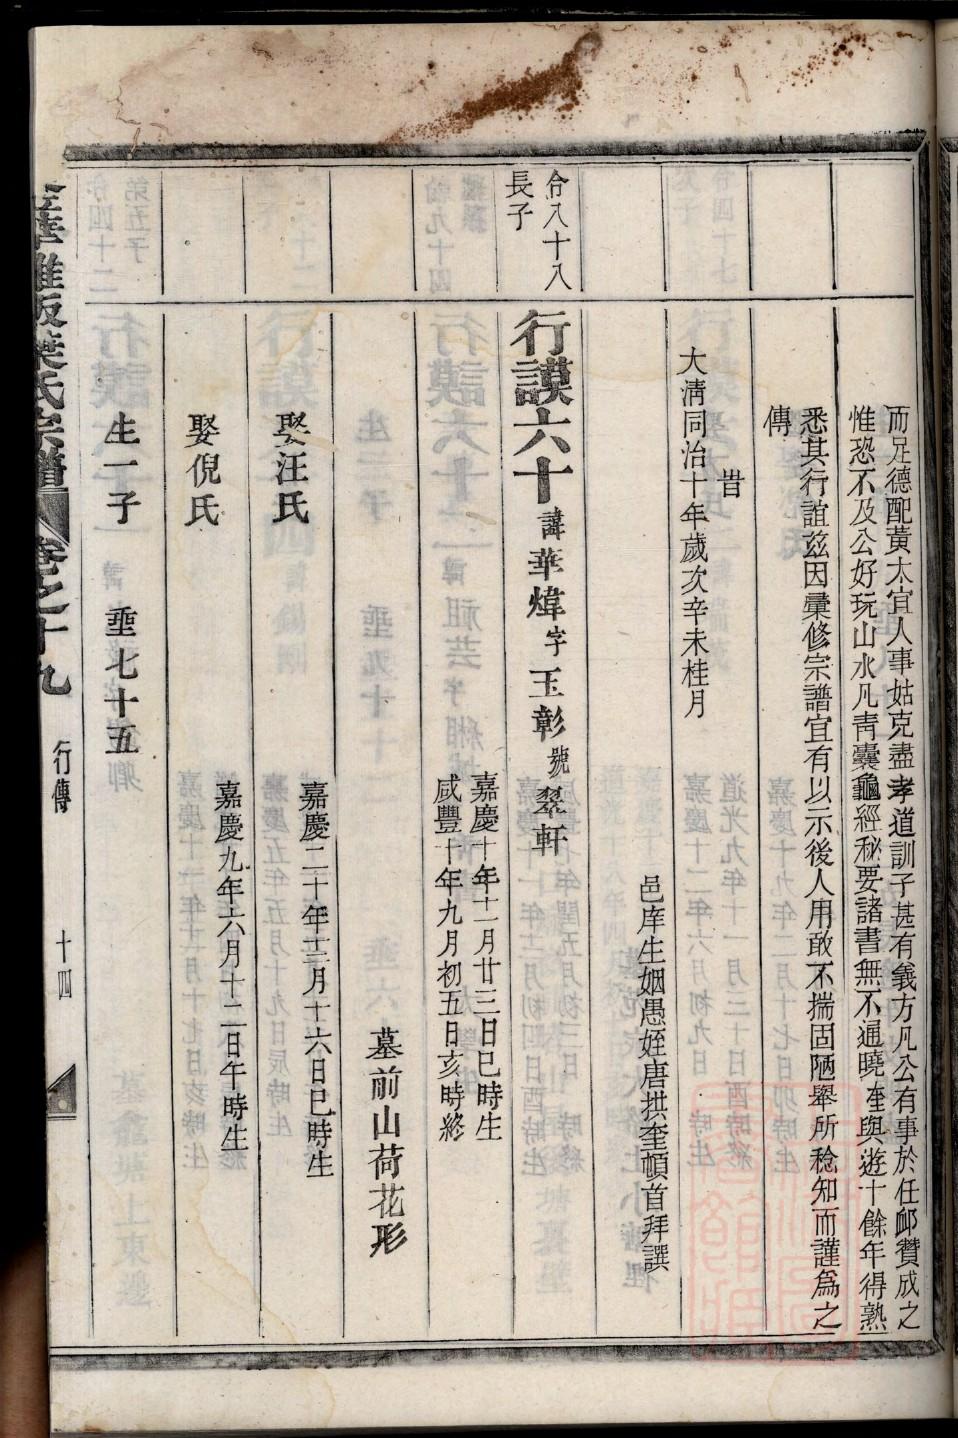 而足德配黃太宜人事姑克盡孝道訓子甚有義方凡公有事於任邮贊成之
惟恐不及公好玩山水凡靑囊龜經秘要諸書無不通曉奎與遊十餘年得熟
悉其行誼茲因彙修宗譜宜有以示後人用敢不揣固陋舉所稔知而謹爲之
傳
旹
大淸同治十年歲次辛未桂月
邑庠生姻愚姪唐拱奎頓首拜譔
合八十八
長子
行謨六十諱華煒字玉彰號翠軒
嘉慶十年十二月廿三日巳時生
咸豐十年九月初五日亥時終
墓前山荷花形
娶汪氏
嘉慶二十年十二月十六日巳時生
娶倪氏
嘉慶九年六月十二日午時生
生一子 埀七十五
華雅畈葉氏宗譜 卷之十九 行傳 十四